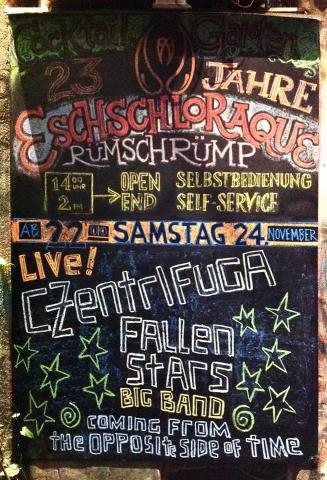 Cocktail Garten
23 JAHRE
ESCHSCHLORAQUE
RÜMSCHRÜMP
14 00 UHR OPEN SELBSTBEDIENUNG
2 IM END SELF-SERVICE
AB 22 00 SAMSTAG 24. NOVEMBER
LIVE!
CZENTRIFUGA
FALLEN
STARS
BIG BAND
COMING FROM
THE OPPOSITE SIDE OF TIME